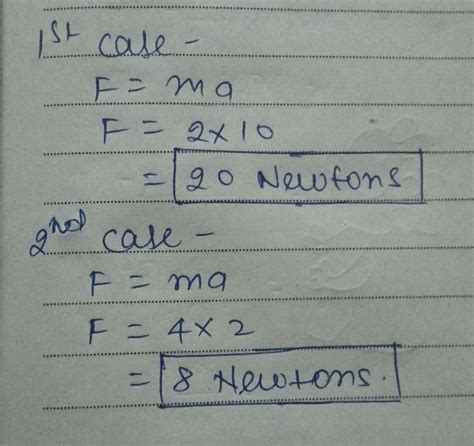 1st case -
F = ma
F = 2 x 10
= 20 Newtons
2nd case -
F = ma
F = 4 x 2
= 8 Newtons.